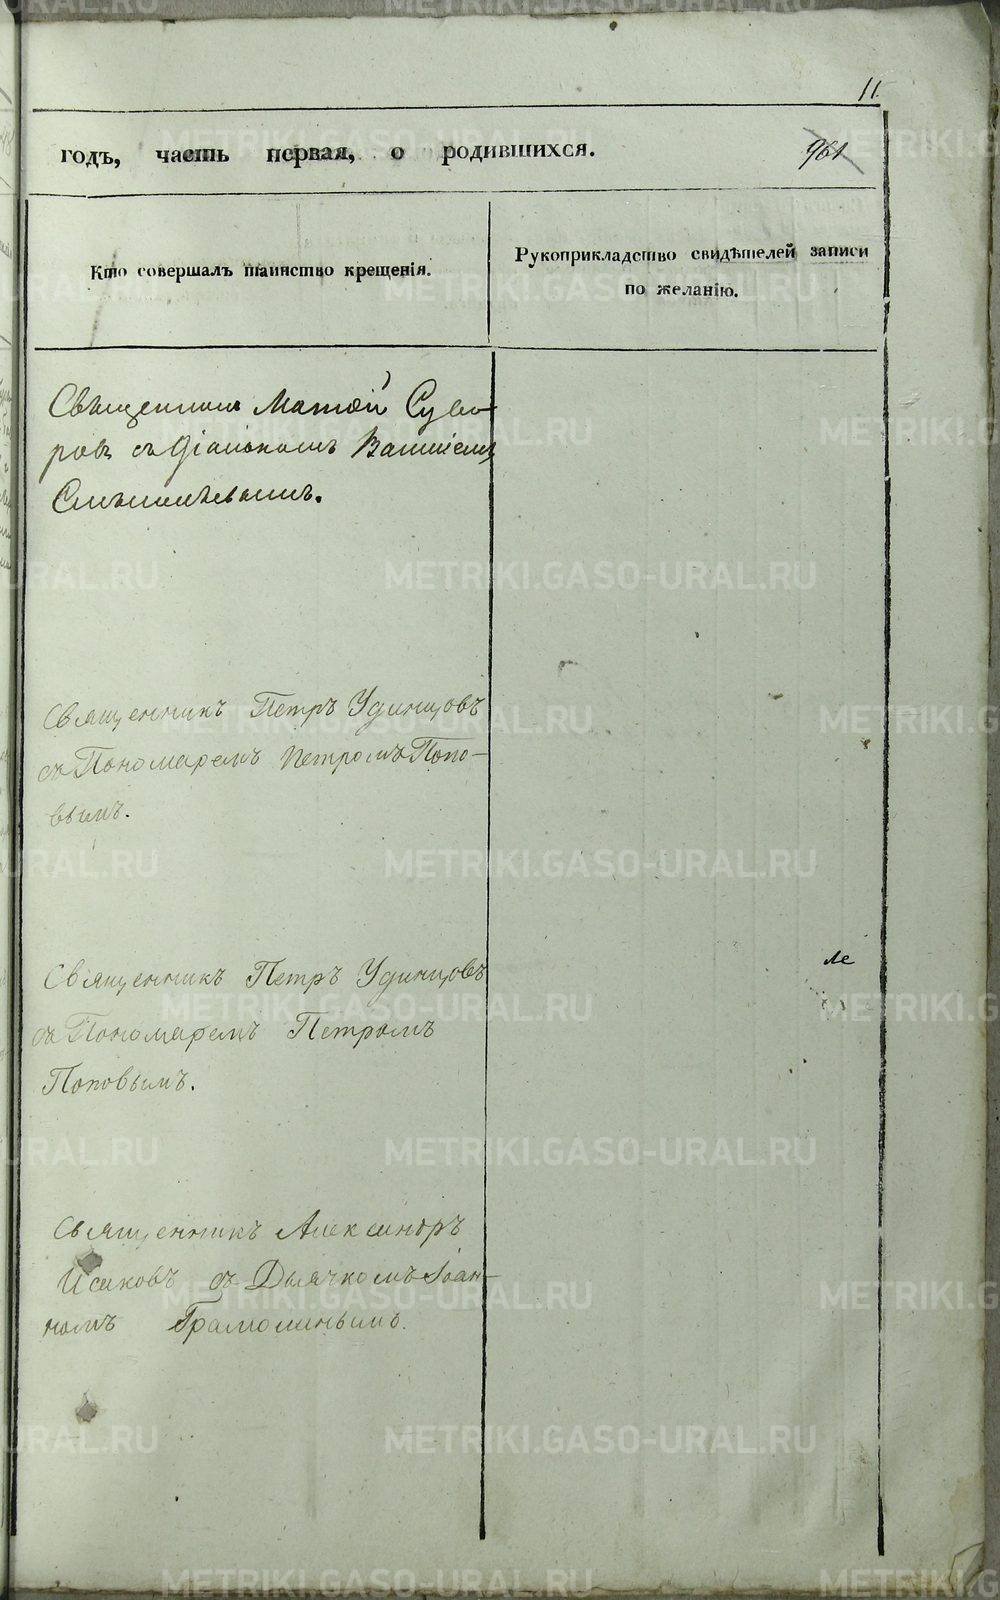 11.
годъ, часть первая, о родившихся.
961
Кто совершалъ таинство крещенія.
Рукоприкладство свидѣтелей записи
по желанію.
Священникъ Матѳій Суво-
ровъ съ Діакономъ
Священникъ Петръ Удинцовъ
съ Пономаремъ Петромъ Попо-
вымъ.
Священникъ Петръ Удинцовъ
съ Пономаремъ Петромъ
Поповымъ.
Священникъ Александръ
Исаковъ съ Дьячкомъ Іоан-
номъ Грамолинымъ.
METRIKI.GASO-URAL.RU